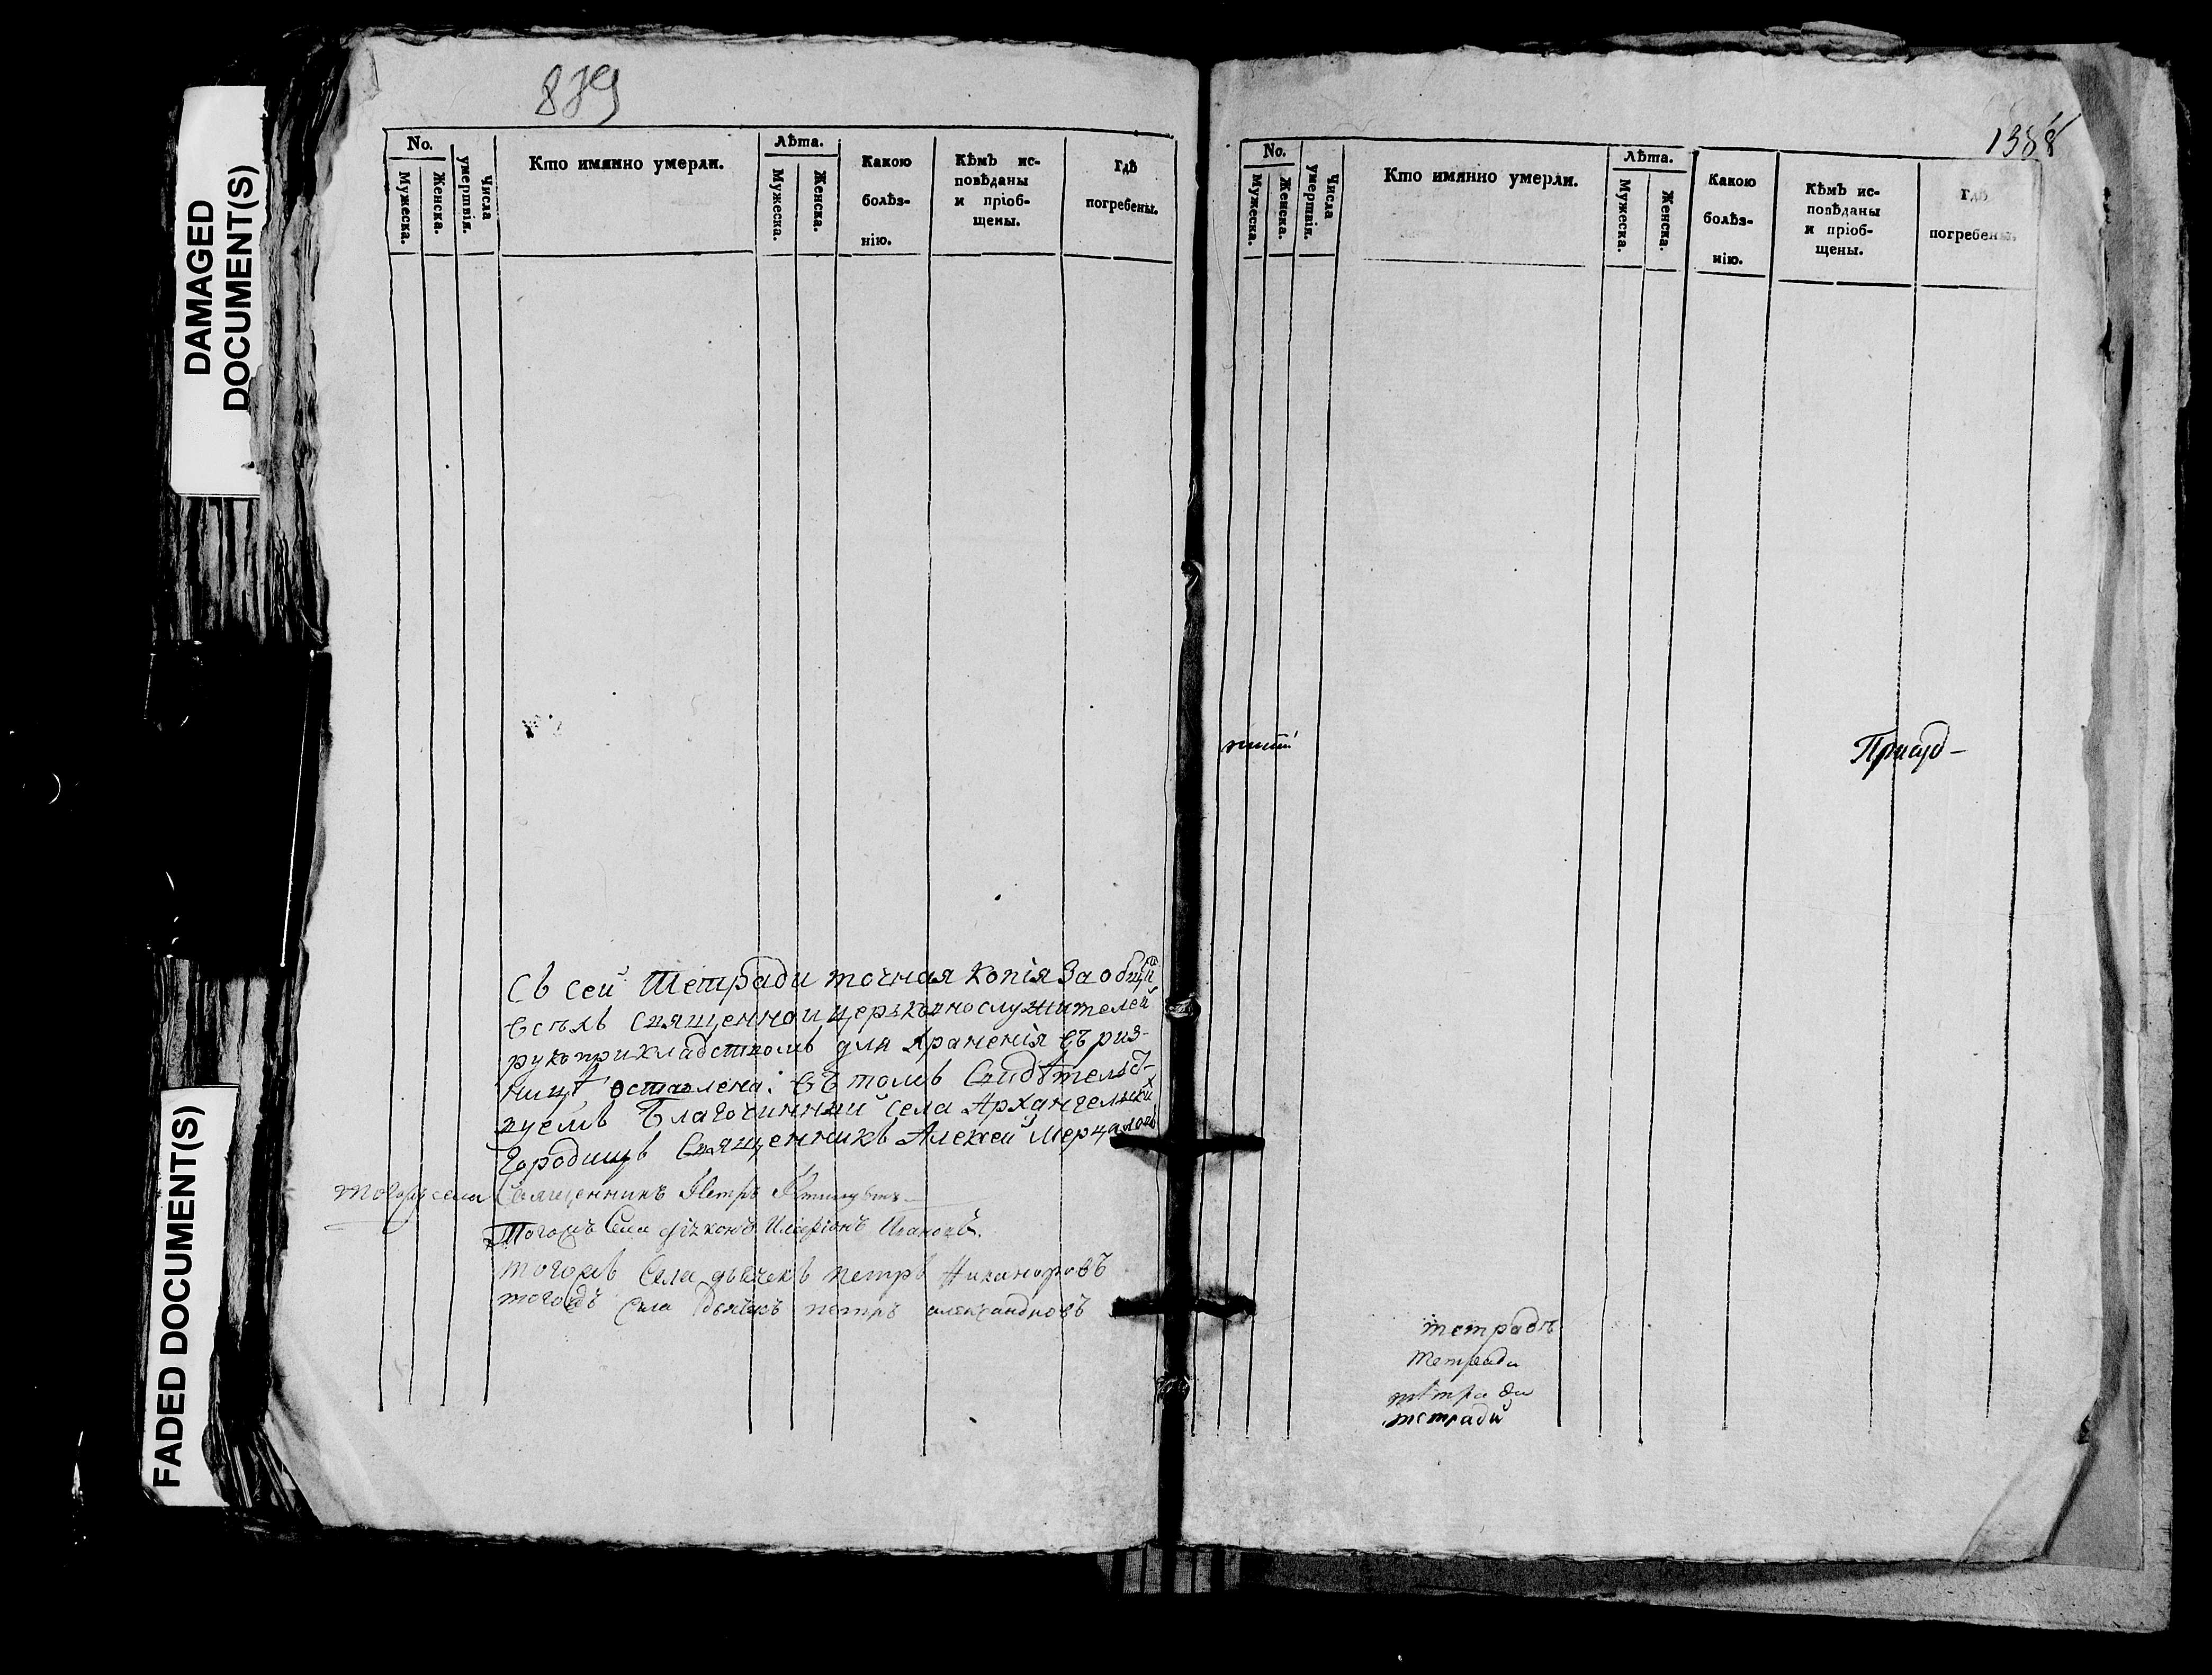 DAMAGED
DOCUMENT(S)
FADED DOCUMENT(S)
839
No.
Мужеска.
Женска.
Числа
умертвія.
Кто имянно умерли.
Лѣта.
Мужеска.
Женска.
Какою
болѣз-
нію.
Кѣмъ ис-
повѣданы
и пріоб-
щены.
Гдѣ
погребены.
Съ сей Тетради точная копія за общій
всѣхъ священно и церьковнослужителей
рукоприкладствомъ для храненія въ риз-
ницѣ оставлена: въ томъ Свидѣтельст-
вуемъ Благочинный села Архангельских
Городищъ Священникъ Алексей Мерцаловъ
тогожъ села Священникъ Петръ
Тогожъ Села діаконъ Иларіонъ Ивановъ.
тогожъ Села дьячекъ петръ Никаноровъ
тогожъ села дьячекъ петръ александровъ
1388
No.
Мужеска.
Женска.
Числа
умертвія.
Кто имянно умерли.
Лѣта.
Мужеска.
Женска.
Какою
болѣз-
нію.
Кѣмъ ис-
повѣданы
и пріоб-
щены.
Гдѣ
погребены.
тетрадь
тетради
тетради
тетради